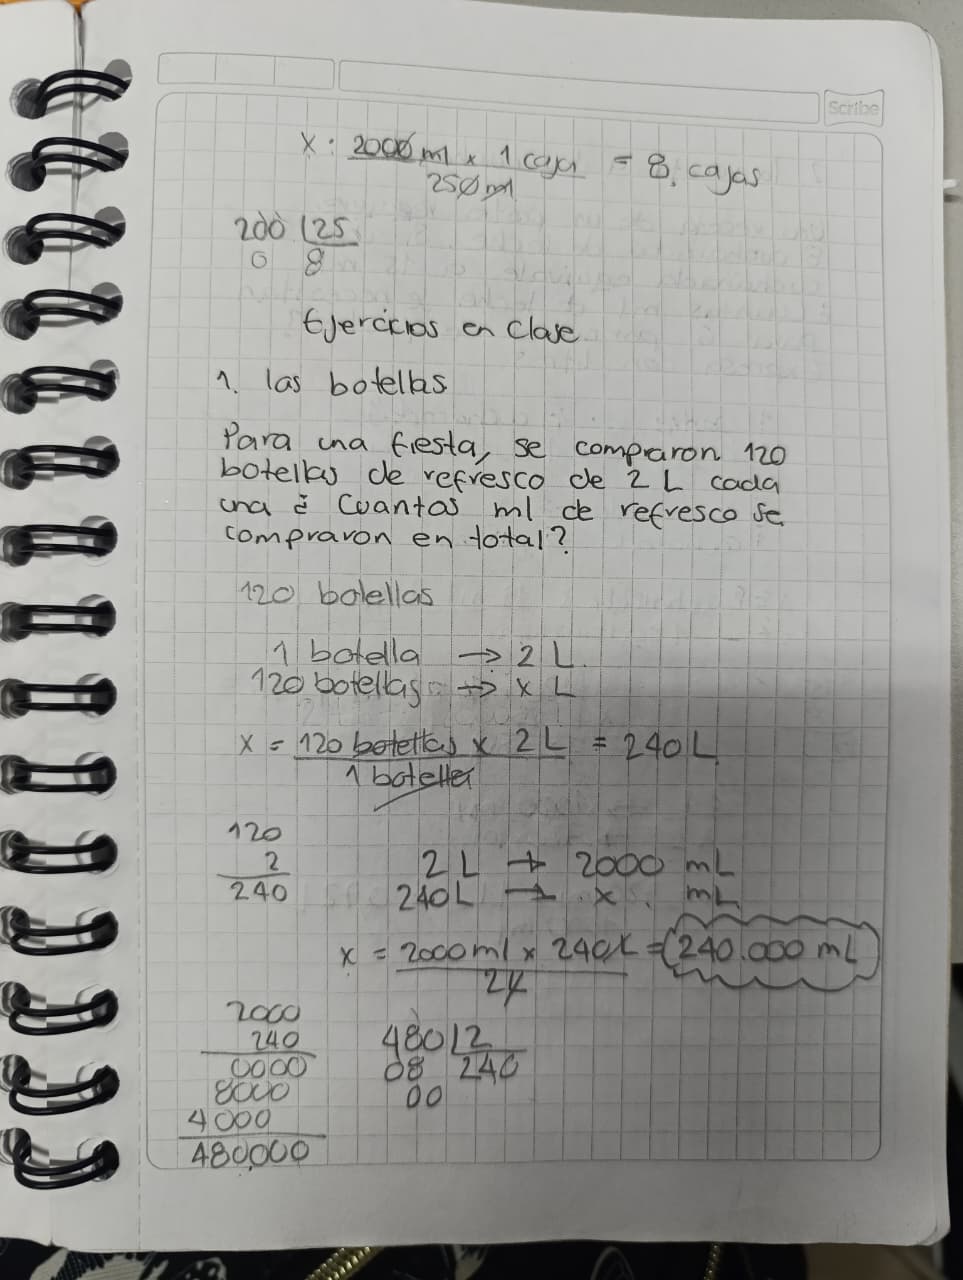 Scribe
x : 2000 ml x 1 caja = 8. cajas
250 ml
200 25
0 8
Ejercicios en Clase
1. las botellas
Para una fiesta, se compraron 120
botellas de refresco de 2 L cada
una ¿ Cuantos ml de refresco se
compraron en total?
120 botellas
1 botella → 2 L.
120 botellas → x L
x = 120 botellas x 2 L = 240 L
1 botella
120
2
240
2 L → 2000 mL
240L → x mL
x = 2000 ml x 240 L = 240.000 mL
2 L
2000
240
0000
8000
4000
480,000
480 2
08 240
00